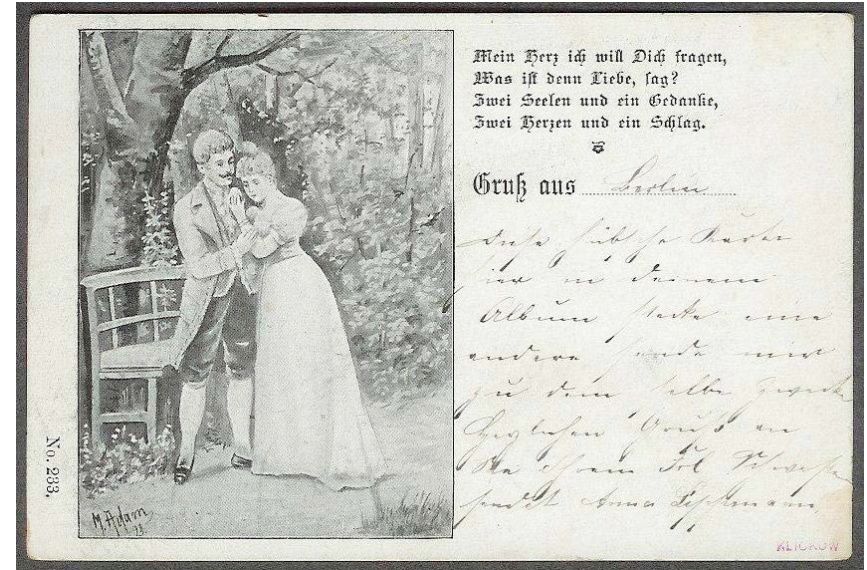 Mein Herz ich will Dich fragen,
Was ist denn Liebe, sag?
Zwei Seelen und ein Gedanke,
Zwei Herzen und ein Schlag.
Gruß aus Berlin
Diese hübsche Karte
hier in deinem
Album stecke eine
andere sende mir
zu dem selbe Zwecke
Herzlichen Gruß an
Sie Ihrem Frl Schwester
sendet Anna
No. 233.
M. Adam
KLICKOW